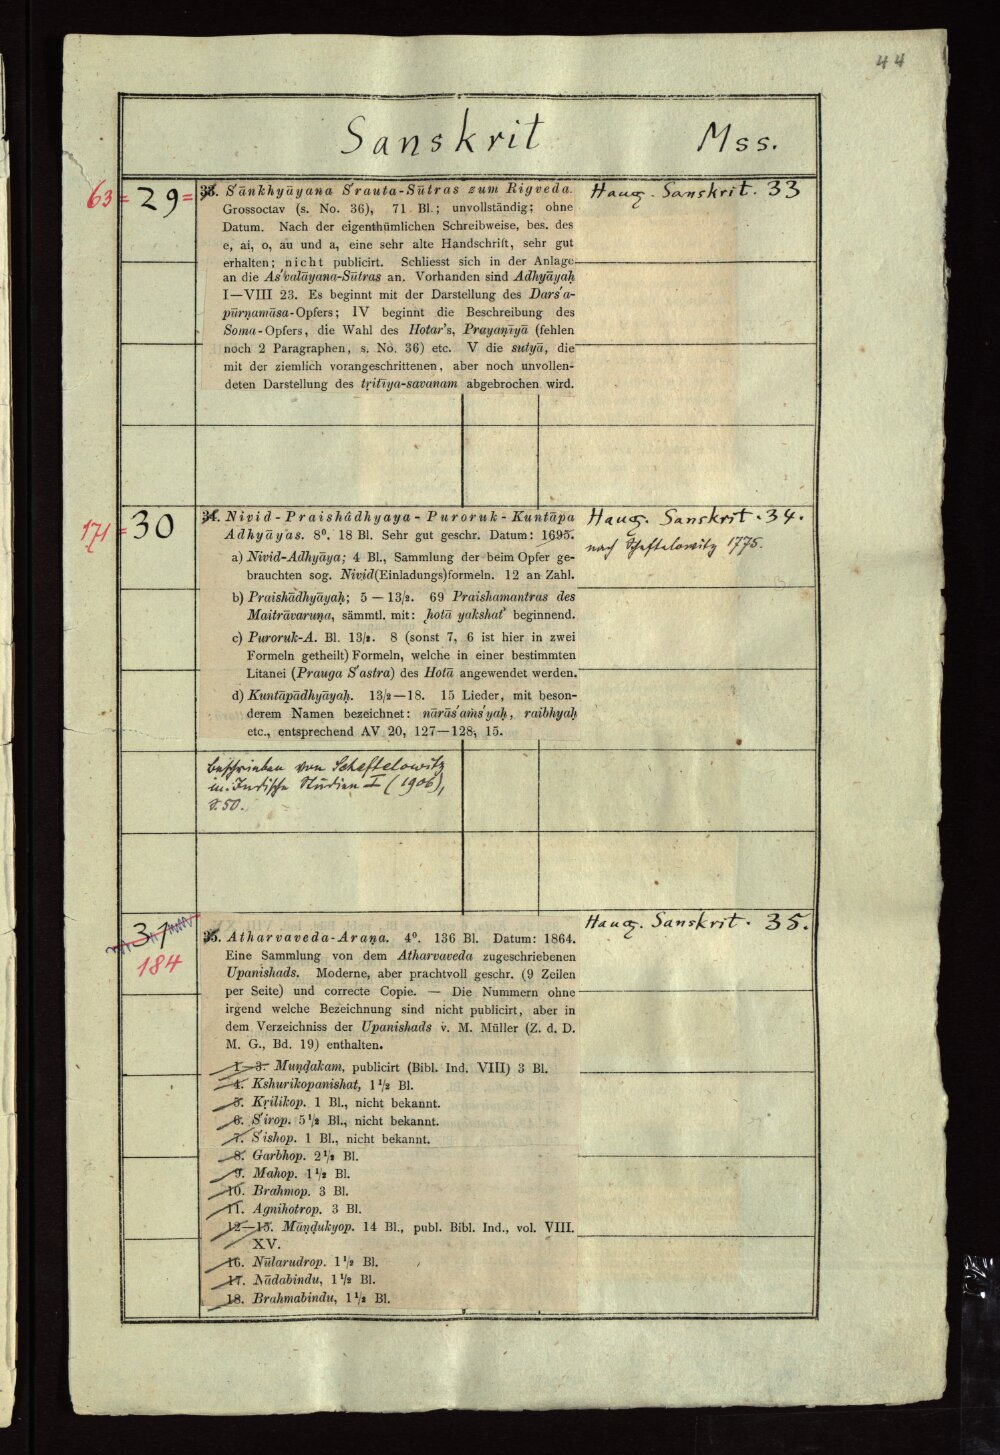 44
Sanskrit Mss.
63 = 29 =
33. S'ānkhyāyana S'rauta-Sūtras zum Rigveda.
Grossoctav (s. No. 36), 71 Bl.; unvollständig; ohne
Datum. Nach der eigenthümlichen Schreibweise, bes. des
e, ai, o, au und a, eine sehr alte Handschrift, sehr gut
erhalten; nicht publicirt. Schliesst sich in der Anlage
an die As'valāyana-Sūtras an. Vorhanden sind Adhyāyaḥ
I—VIII 23. Es beginnt mit der Darstellung des Dars'a-
pūrṇamāsa-Opfers; IV beginnt die Beschreibung des
Soma-Opfers, die Wahl des Hotar's, Prayaṇīyā (fehlen
noch 2 Paragraphen, s. No. 36) etc. V die sutyā, die
mit der ziemlich vorangeschrittenen, aber noch unvollen-
deten Darstellung des tṛitīya-savanam abgebrochen wird.
Haug. Sanskrit. 33
171 = 30
34. Nivid-Praishâdhyaya-Puroruk-Kuntāpa
Adhyāyas. 8⁰. 18 Bl. Sehr gut geschr. Datum: 1695.
a) Nivid-Adhyāya; 4 Bl., Sammlung der beim Opfer ge-
brauchten sog. Nivid(Einladungs)formeln. 12 an Zahl.
b) Praishādhyāyaḥ; 5 — 13/2. 69 Praishamantras des
Maitrāvaruṇa, sämmtl. mit: hotā yakshat' beginnend.
c) Puroruk-A. Bl. 13/2. 8 (sonst 7, 6 ist hier in zwei
Formeln getheilt) Formeln, welche in einer bestimmten
Litanei (Prauga S'astra) des Hotā angewendet werden.
d) Kuntāpādhyāyaḥ. 13/2—18. 15 Lieder, mit beson-
derem Namen bezeichnet: nārās'aṁs'yaḥ, raibhyaḥ
etc., entsprechend AV 20, 127—128, 15.
Haug. Sanskrit. 34.
nach Scheftelowitz 1775.
beschrieben von Scheftelowitz
in Indische Studien I (1906),
S. 50.
31
184
35. Atharvaveda-Araṇa. 4⁰. 136 Bl. Datum: 1864.
Eine Sammlung von dem Atharvaveda zugeschriebenen
Upanishads. Moderne, aber prachtvoll geschr. (9 Zeilen
per Seite) und correcte Copie. — Die Nummern ohne
irgend welche Bezeichnung sind nicht publicirt, aber in
dem Verzeichniss der Upanishads v. M. Müller (Z. d. D.
M. G., Bd. 19) enthalten.
1—3. Muṇḍakam, publicirt (Bibl. Ind. VIII) 3 Bl.
4. Kshurikopanishat, 1½ Bl.
5. Kṛilikop. 1 Bl., nicht bekannt.
6. S'irop. 5½ Bl., nicht bekannt.
7. S'ishop. 1 Bl., nicht bekannt.
8. Garbhop. 2½ Bl.
9. Mahop. 1½ Bl.
10. Brahmop. 3 Bl.
11. Agnihotrop. 3 Bl.
12—15. Māṇḍukyop. 14 Bl., publ. Bibl. Ind., vol. VIII.
XV.
16. Nūlarudrop. 1½ Bl.
17. Nādabindu, 1½ Bl.
18. Brahmabindu, 1½ Bl.
Haug. Sanskrit. 35.